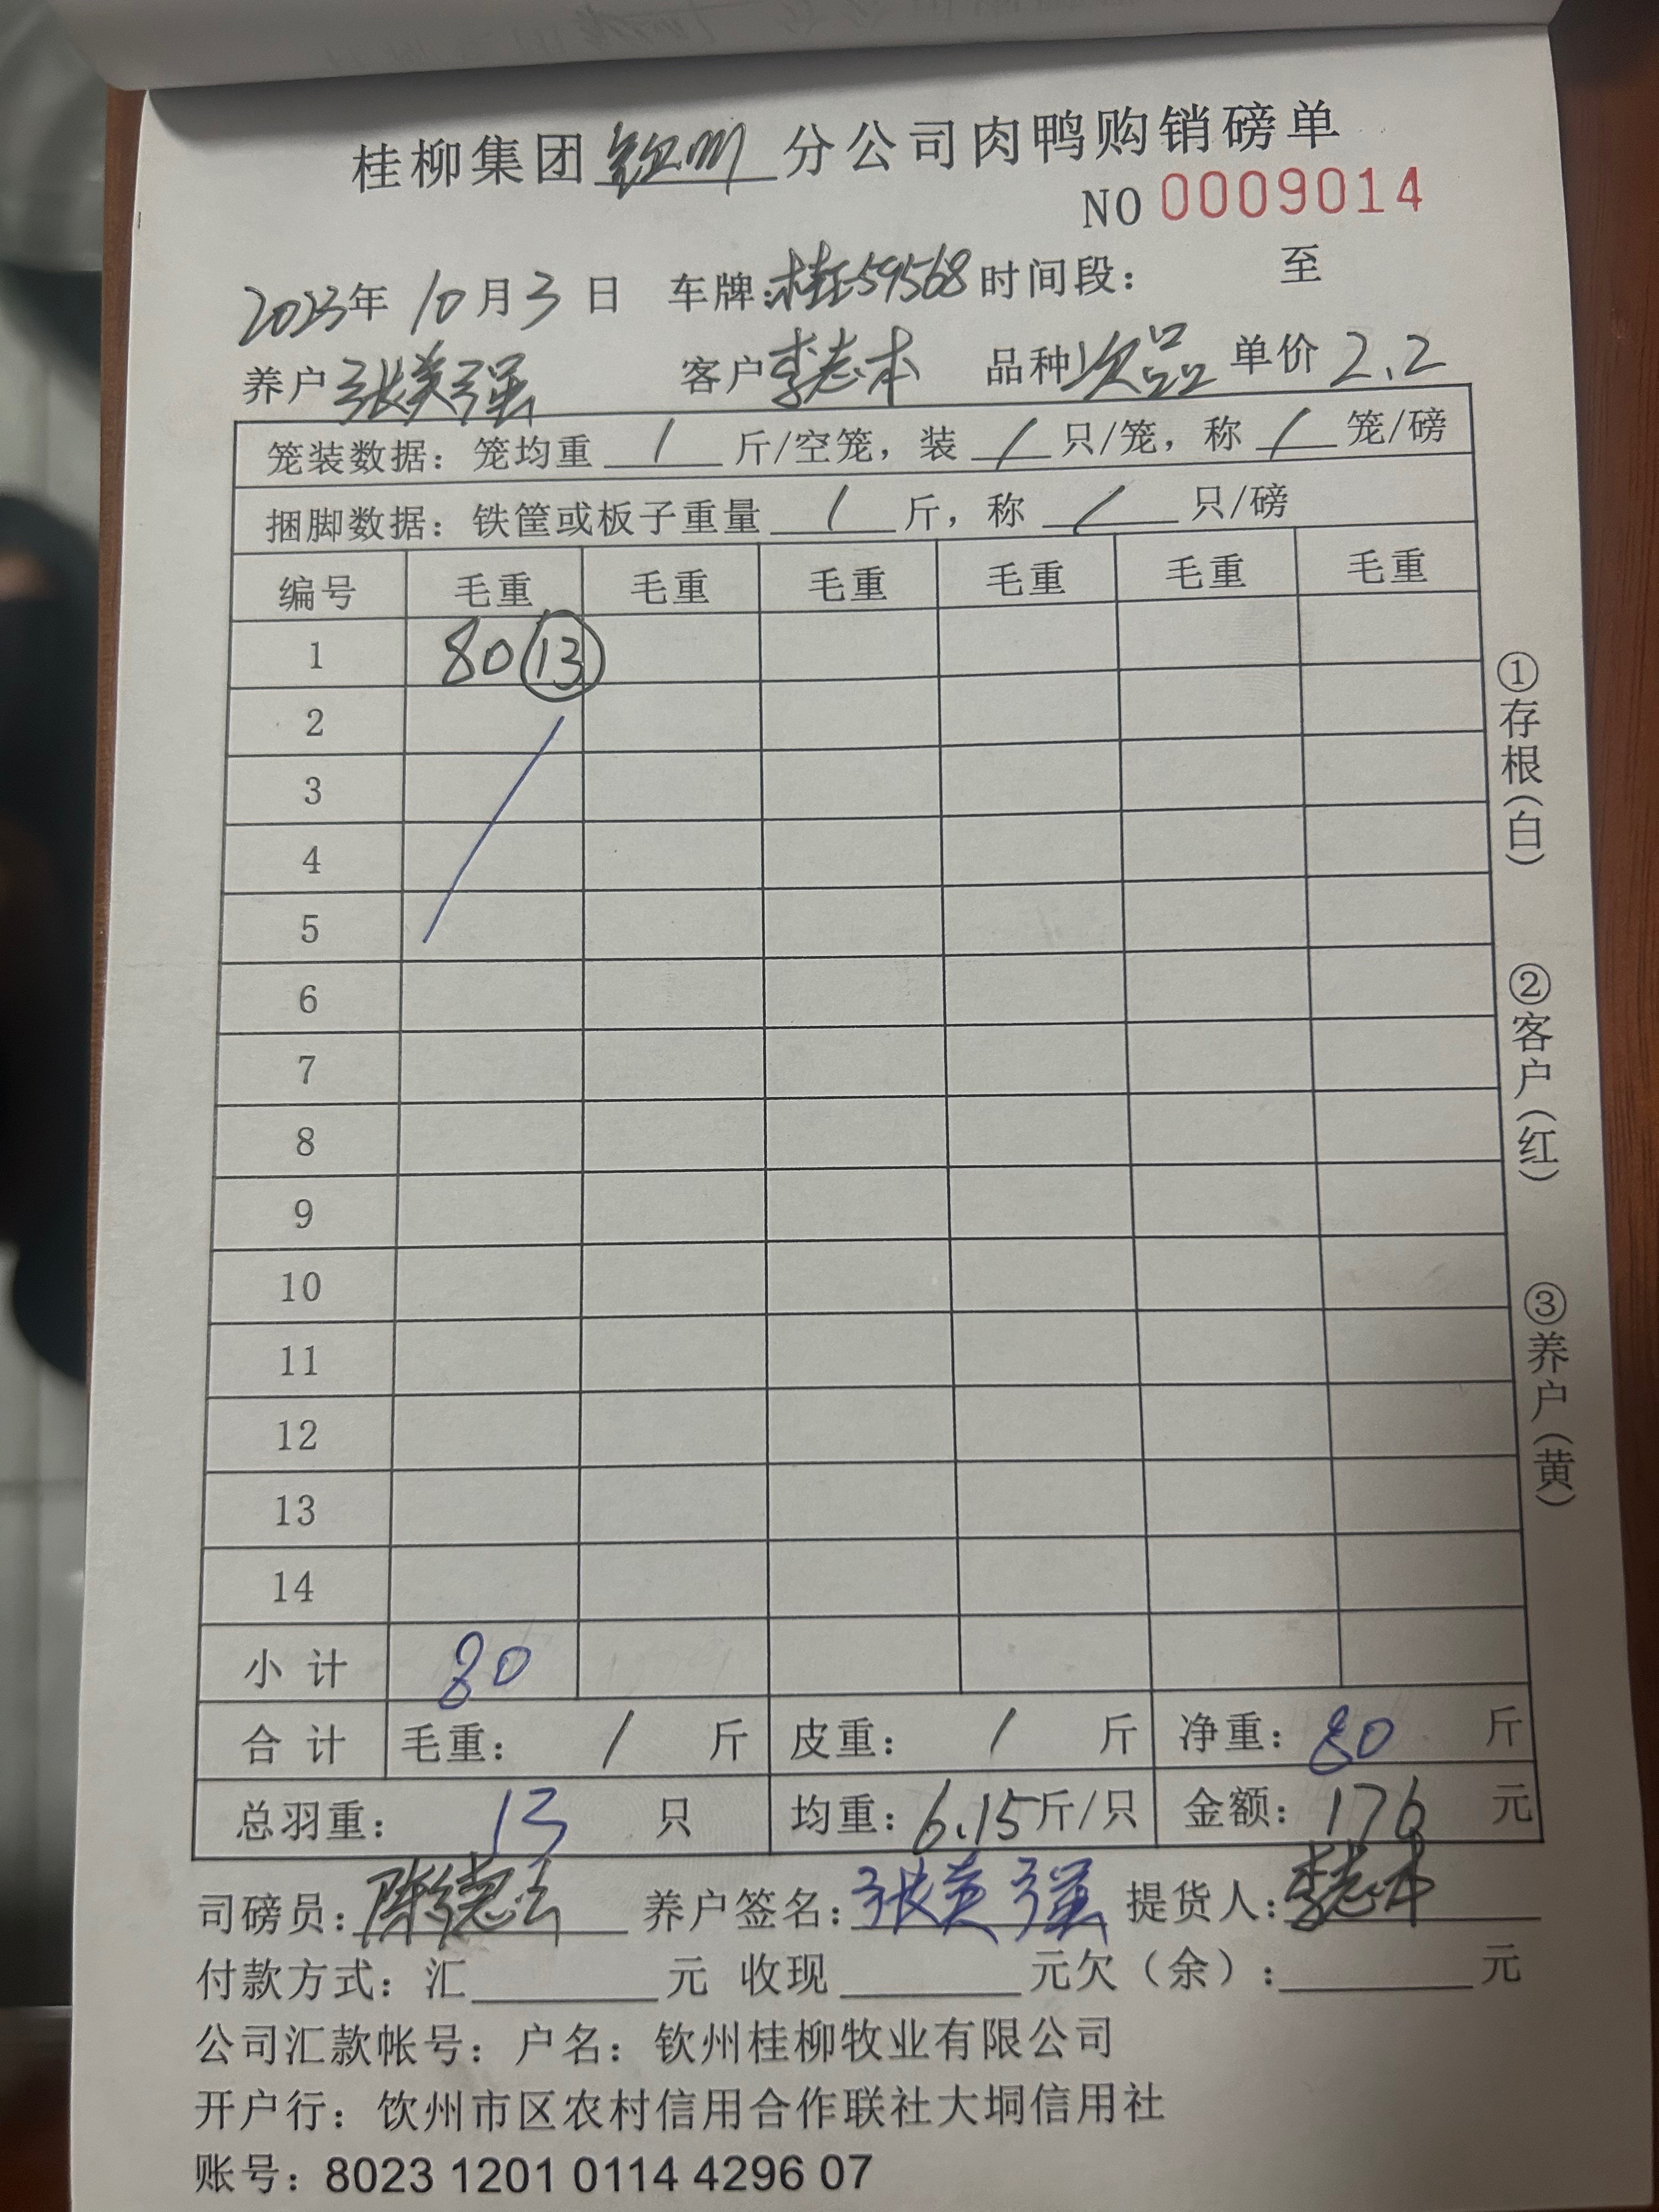 桂柳集团钦州分公司肉鸭购销磅单
NO 0009014
2023年10月3日 车牌:桂E59568 时间段: 至
养户 张英强 客户 李志本 品种 次品 单价 2.2
笼装数据: 笼均重 / 斤/空笼, 装 / 只/笼, 称 / 笼/磅
捆脚数据: 铁筐或板子重量 / 斤, 称 / 只/磅
编号 毛重 毛重 毛重 毛重 毛重 毛重
1 80 13
2
3
4
5
6
7
8
9
10
11
12
13
14
小计 80
合计 毛重: / 斤 皮重: / 斤 净重: 80 斤
总羽重: 13 只 均重: 6.15斤/只 金额: 176 元
司磅员: 陈德 养户签名: 张英强 提货人: 李志本
付款方式: 汇 元 收现 元欠(余): 元
公司汇款帐号: 户名: 钦州桂柳牧业有限公司
开户行: 饮州市区农村信用合作联社大垌信用社
账号: 8023 1201 0114 4296 07
①存根(白)
②客户(红)
③养户(黄)